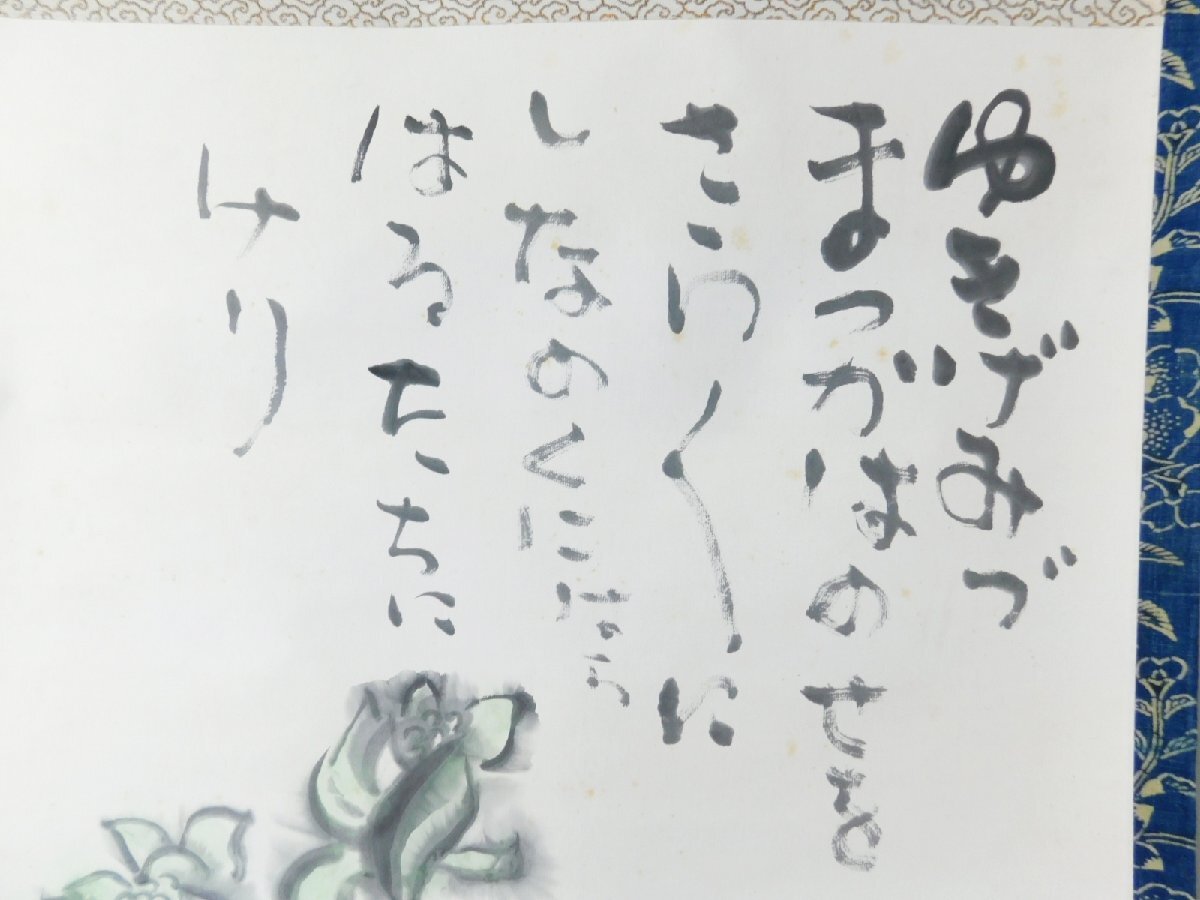 ゆきげみづ
まつがはのせを
さわ〱に
しなのくにはら
はるたちに
けり